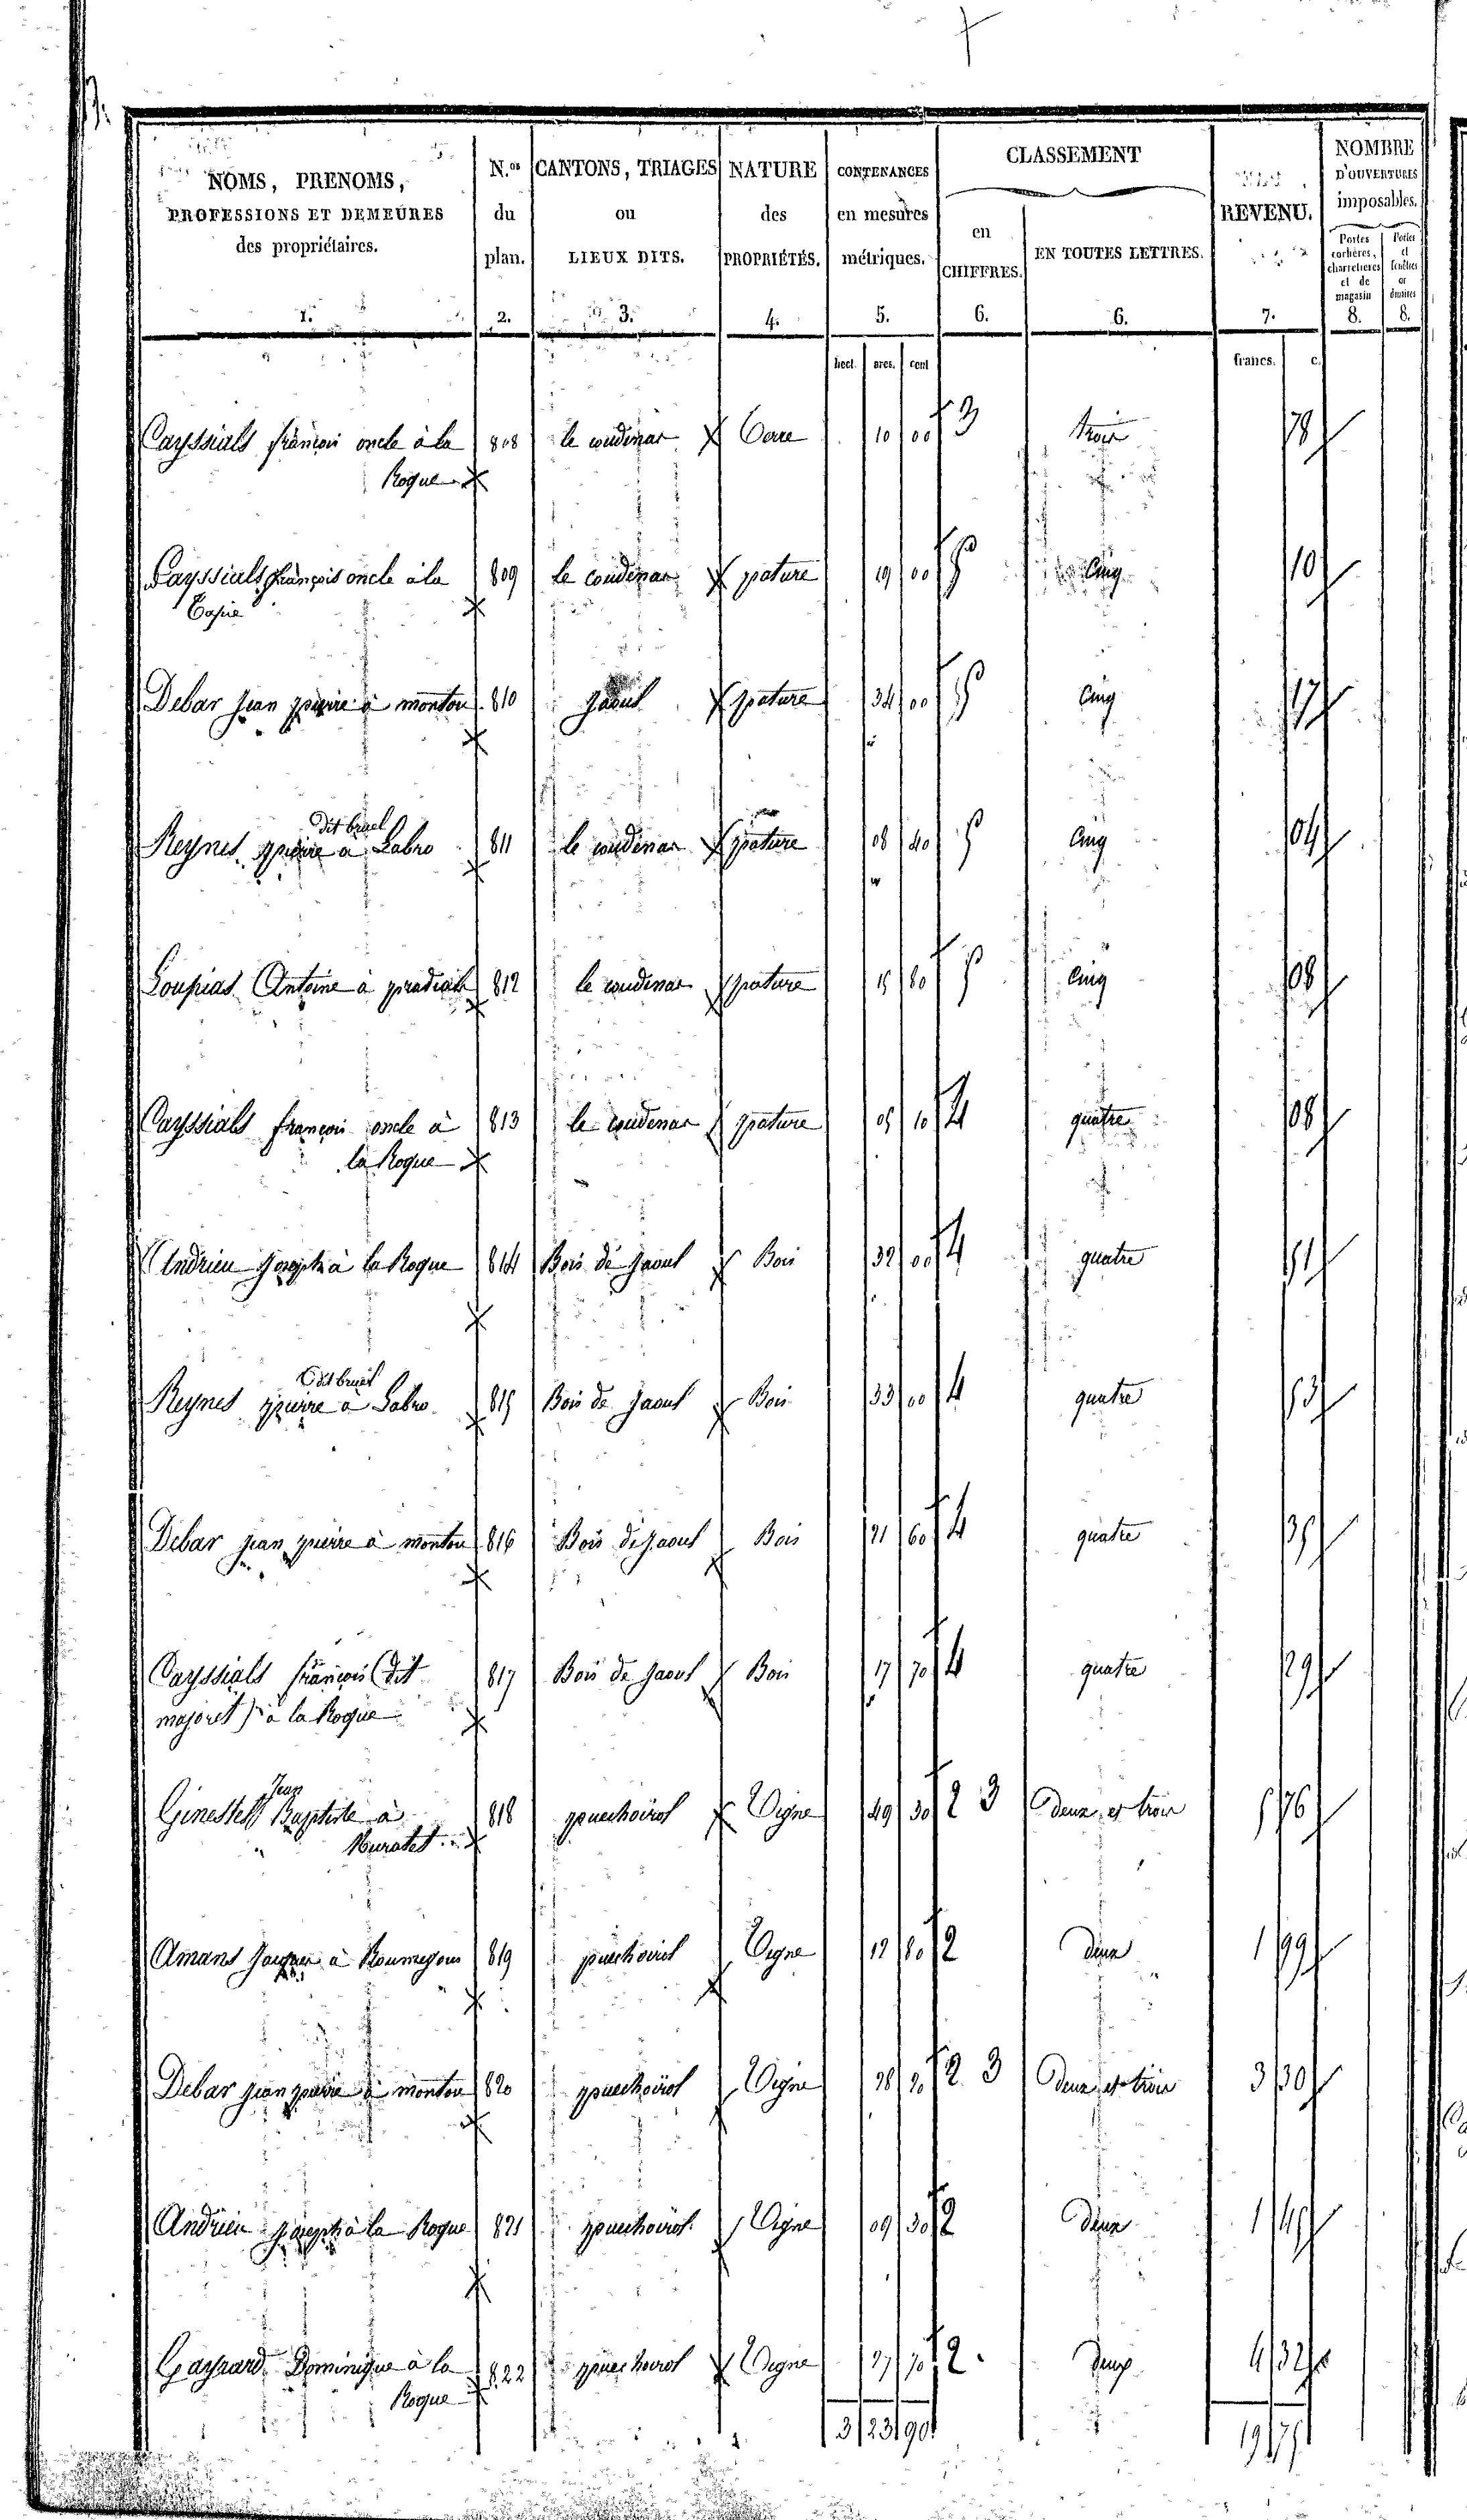 NOMS, PRENOMS, PROFESSIONS ET DEMEURES des propriétaires. 1.
N.os du plan. 2.
CANTONS, TRIAGES ou LIEUX DITS. 3.
NATURE des PROPRIÉTÉS. 4.
CONTENANCES en mesures métriques. 5.
CLASSEMENT
en CHIFFRES. 6.
EN TOUTES LETTRES. 6.
REVENU. 7.
NOMBRE D'OUVERTURES imposables.
Portes cochères, charretières et de magasin 8.
Portes et fenêtres 8.
hect. ares. cent francs. c.
Cayssials françois oncle à la 808 le coudenas Terre 10 00 3 trois 78
Roque
Cayssials françois oncle à la 809 le coudenas pature 19 00 5 Cinq 10
Debar jean pierre à montou 810 pature 34 00 5 Cinq 17
dit bruel
Reynes pierre à Labro 811 le coudenas pature 08 40 5 Cinq 04
Loupias Antoine à 812 le coudenas pature 15 80 5 Cinq 08
Cayssials françois oncle à 813 le coudenas pature 05 10 4 quatre 08
la Roque
Andrieu Joseph à la Roque 814 Bois de Jaoul Bois 32 00 4 quatre 51
dit bruel
Reynes pierre à Labro 815 Bois de Jaoul Bois 33 00 4 quatre 53
Debar jean pierre à montou 816 Bois de Jaoul Bois 21 60 4 quatre 35
Cayssials françois (dit 817 Bois de Jaoul Bois 17 70 4 quatre 29
majoret) à la Roque
Jean
Ginestet Baptiste à 818 puechoirol Vigne 49 30 2 3 Deux et trois 5 76
Muratet
Amans à Roumegous 819 puechoirol Vigne 12 80 2 Deux 1 99
Debar jean pierre à montou 820 puechoirol Vigne 28 20 2 3 Deux et trois 3 30
Andrieu Joseph à la Roque 821 puechoirol Vigne 09 30 2 Deux 1 45
Gayrard Dominique à la 822 puechoirol Vigne 27 70 2. Deux 4 32
Roque
3 23 90
19 75